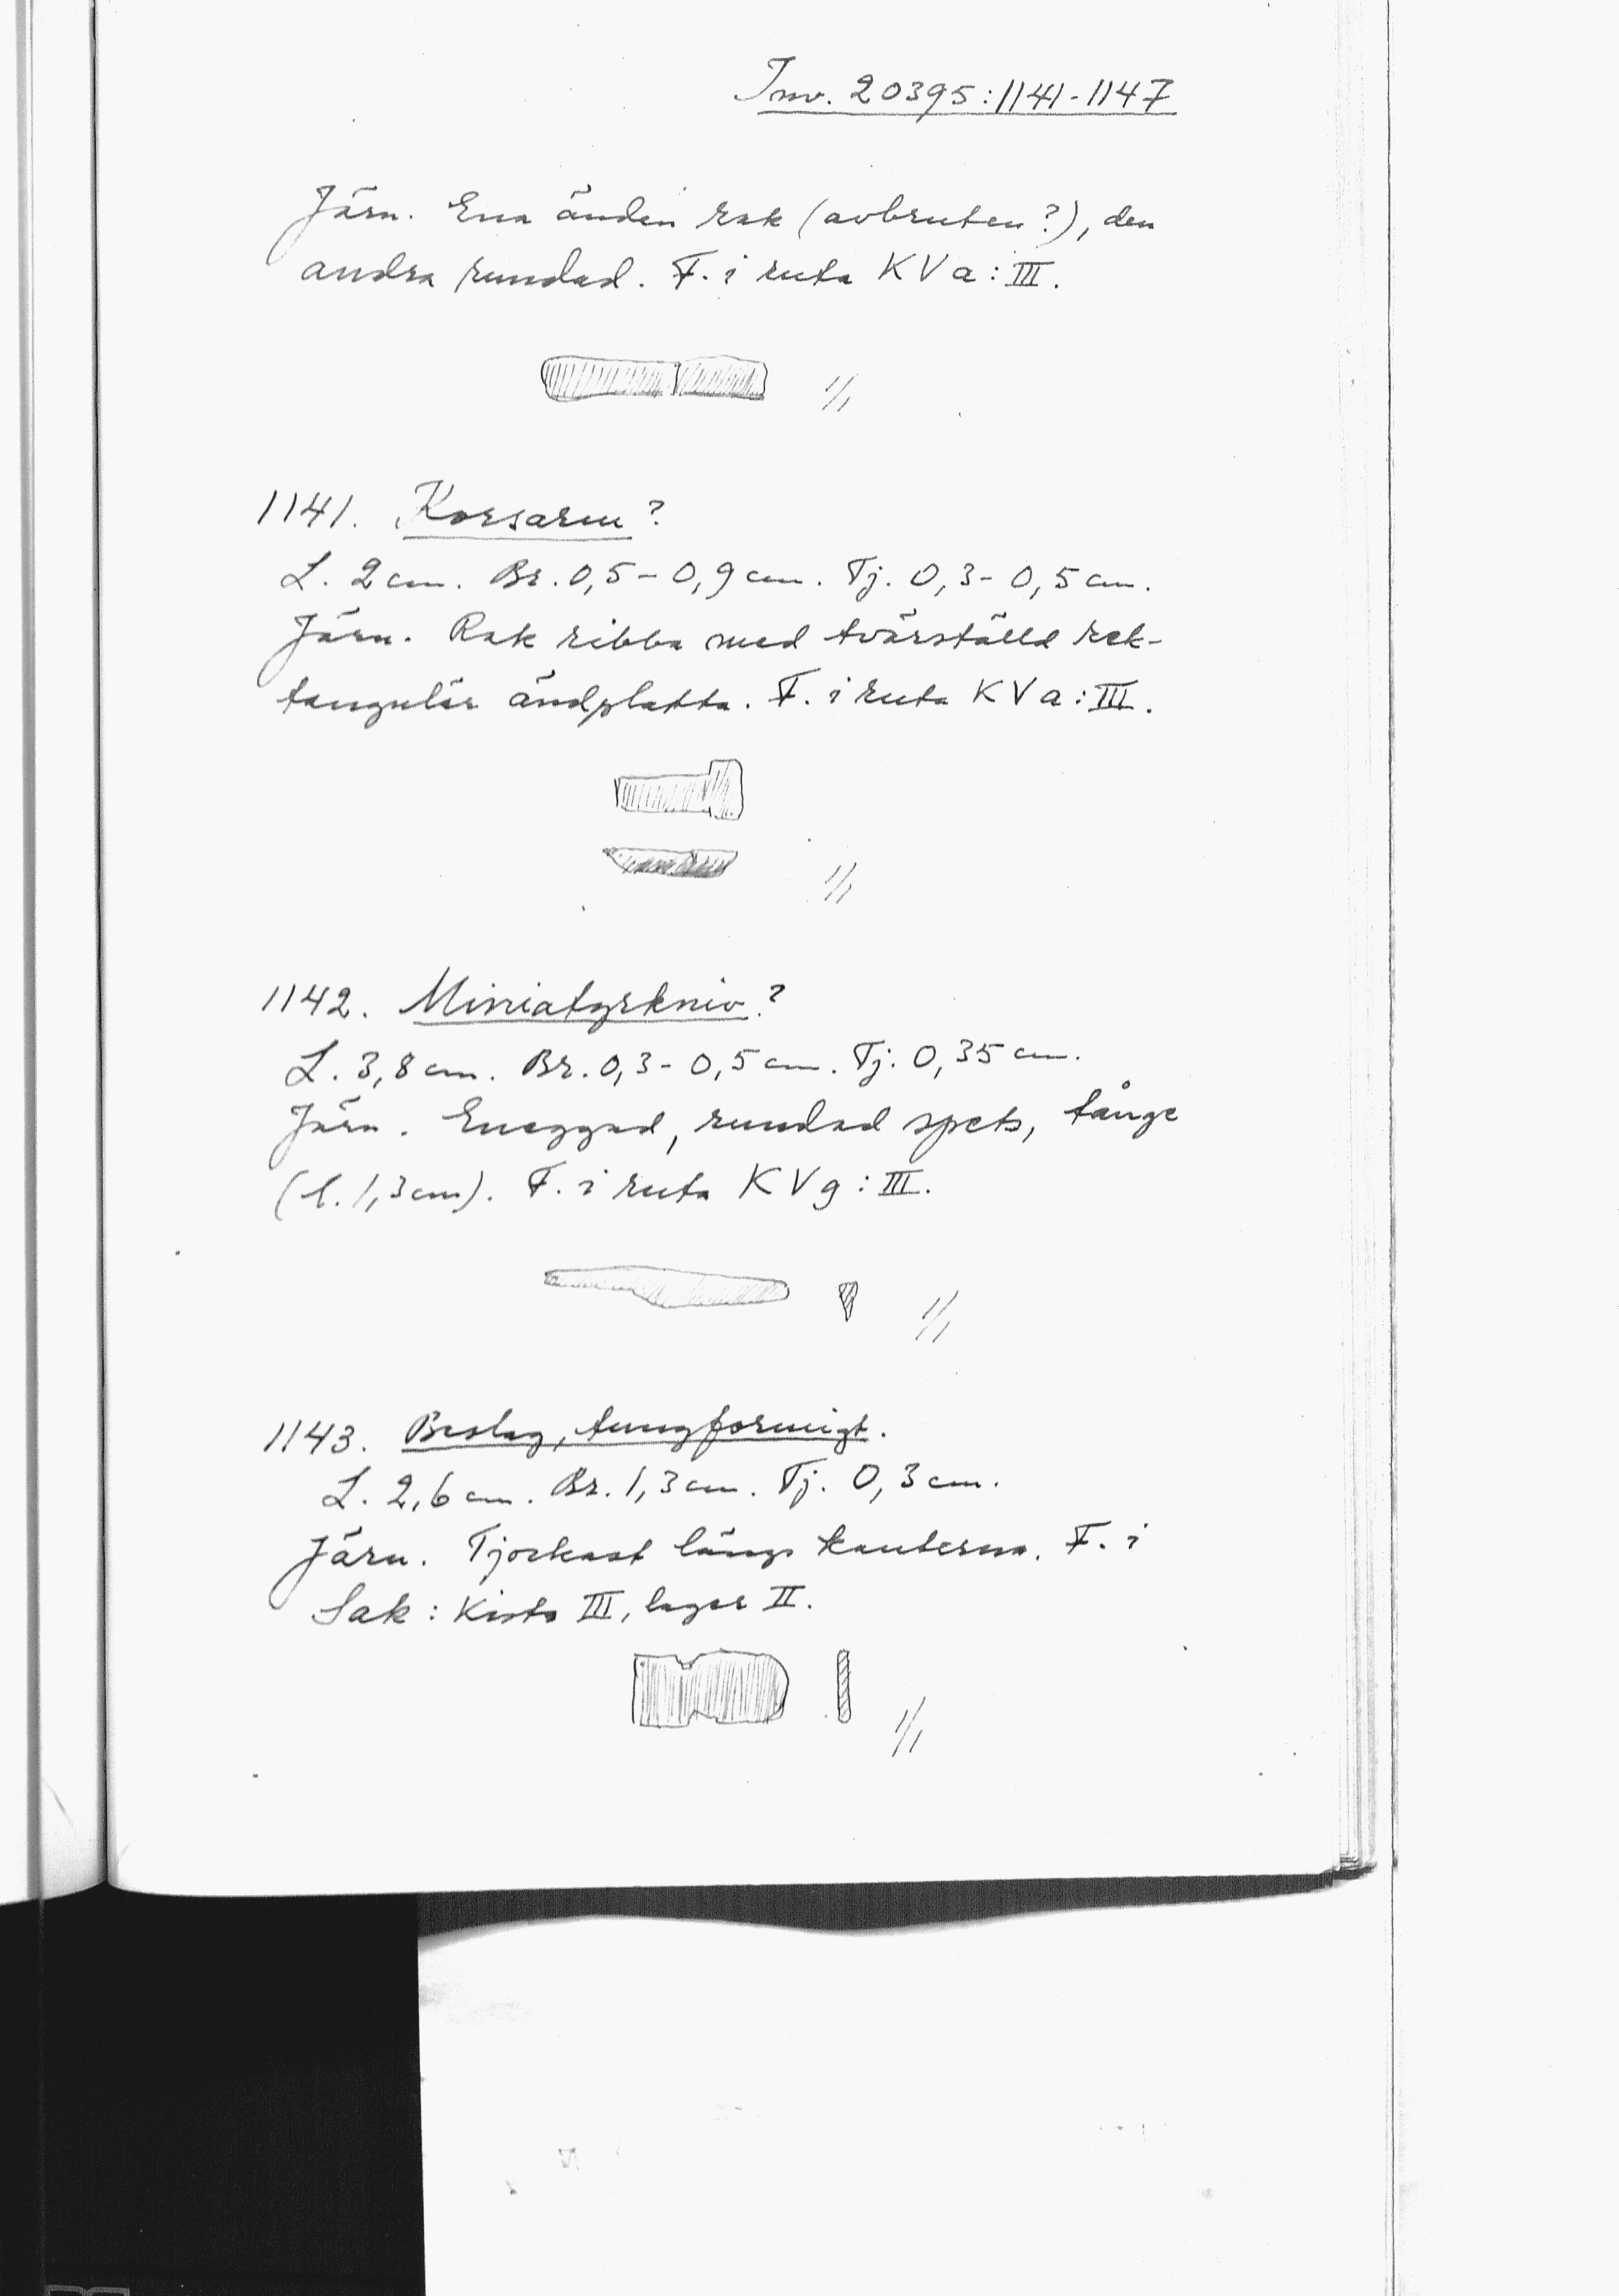 Inv. 20395:1141-1147
Järn. Ena änden rak (avbruten?), den
andra rundad. F. i ruta KVa:III.
1/1
1141. Korsarm?
L. 2 cm. Br. 0,5-0,9 cm. Tj. 0,3-0,5 cm.
Järn. Rak ribba med tvärställd rek-
tangulär ändplatta. F. i ruta KVa:III.
1/1
1142. Miniatyrkniv?
L. 3,8 cm. Br. 0,3-0,5 cm. Tj. 0,35 cm.
Järn. Eneggad, rundad spets, tånge
(l. 1,3 cm). F. i ruta KVg:III.
1/1
1143. Beslag, tungformigt.
L. 2,6 cm. Br. 1,3 cm. Tj. 0,3 cm.
Järn. Tjockast längs kanterna. F. i
Sak: Kista III, lager II.
1/1